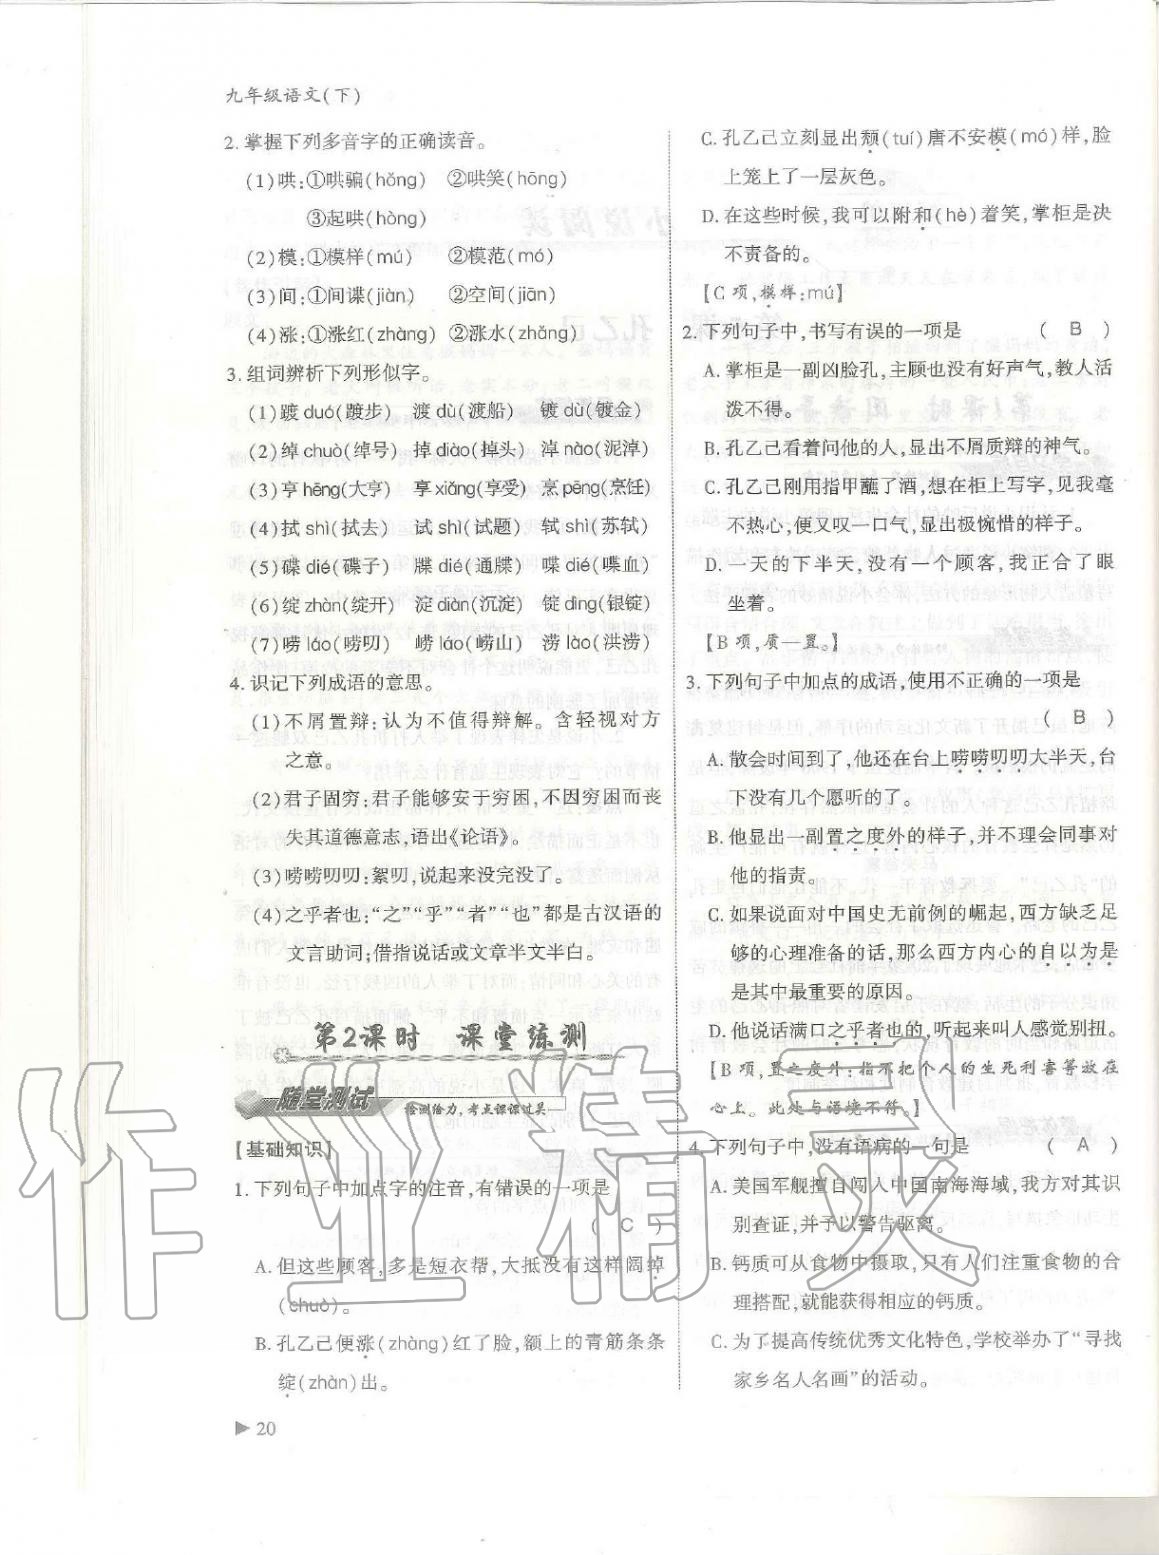 九年级语文(下)
2. 掌握下列多音字的正确读音。
(1)哄:①哄骗(hǒng) ②哄笑(hōng)
③起哄(hòng)
(2)模:①模样(mú) ②模范(mó)
(3)间:①间谍(jiàn) ②空间(jiān)
(4)涨:①涨红(zhàng) ②涨水(zhǎng)
3. 组词辨析下列形似字。
(1)踱 duó(踱步) 渡 dù(渡船) 镀 dù(镀金)
(2)绰 chuò(绰号) 掉 diào(掉头) 淖 nào(泥淖)
(3)亨 hēng(大亨) 享 xiǎng(享受) 烹 pēng(烹饪)
(4)拭 shì(拭去) 试 shì(试题) 轼 shì(苏轼)
(5)碟 dié(碟子) 牒 dié(通牒) 喋 dié(喋血)
(6)绽 zhàn(绽开) 淀 diàn(沉淀) 锭 dìng(银锭)
(7)唠 láo(唠叨) 崂 láo(崂山) 涝 lào(洪涝)
4. 识记下列成语的意思。
(1)不屑置辩:认为不值得辩解。含轻视对方
之意。
(2)君子固穷:君子能够安于穷困,不因穷困而丧
失其道德意志,语出《论语》。
(3)唠唠叨叨:絮叨,说起来没完没了。
(4)之乎者也:“之”“乎”“者”“也”都是古汉语的
文言助词;借指说话或文章半文半白。
第2课时 课堂练测
随堂测试 检测给力,考点课课过关
【基础知识】
1. 下列句子中加点字的注音,有错误的一项是
( C )
A. 但这些顾客,多是短衣帮,大抵没有这样阔绰
(chuò)。
B. 孔乙己便涨(zhàng)红了脸,额上的青筋条条
绽(zhàn)出。
20
C. 孔乙己立刻显出颓(tuí)唐不安模(mó)样,脸
上笼上了一层灰色。
D. 在这些时候,我可以附和(hè)着笑,掌柜是决
不责备的。
【C 项,模样:mú】
2. 下列句子中,书写有误的一项是 ( B )
A. 掌柜是一副凶脸孔,主顾也没有好声气,教人活
泼不得。
B. 孔乙己看着问他的人,显出不屑质辩的神气。
C. 孔乙己刚用指甲蘸了酒,想在柜上写字,见我毫
不热心,便又叹一口气,显出极惋惜的样子。
D. 一天的下半天,没有一个顾客,我正合了眼
坐着。
【B 项,质—置。】
3. 下列句子中加点的成语,使用不正确的一项是
( B )
A. 散会时间到了,他还在台上唠唠叨叨大半天,台
下没有几个愿听的了。
B. 他显出一副置之度外的样子,并不理会同事对
他的指责。
C. 如果说面对中国史无前例的崛起,西方缺乏足
够的心理准备的话,那么西方内心的自以为是
是其中最重要的原因。
D. 他说话满口之乎者也的,听起来叫人感觉别扭。
【B 项,置之度外:指不把个人的生死利害等放在
心上。此处与语境不符。】
4. 下列句子中,没有语病的一句是 ( A )
A. 美国军舰擅自闯入中国南海海域,我方对其识
别查证,并予以警告驱离。
B. 钙质可从食物中摄取,只有人们注重食物的合
理搭配,就能获得相应的钙质。
C. 为了提高传统优秀文化特色,学校举办了“寻找
家乡名人名画”的活动。
作业精灵